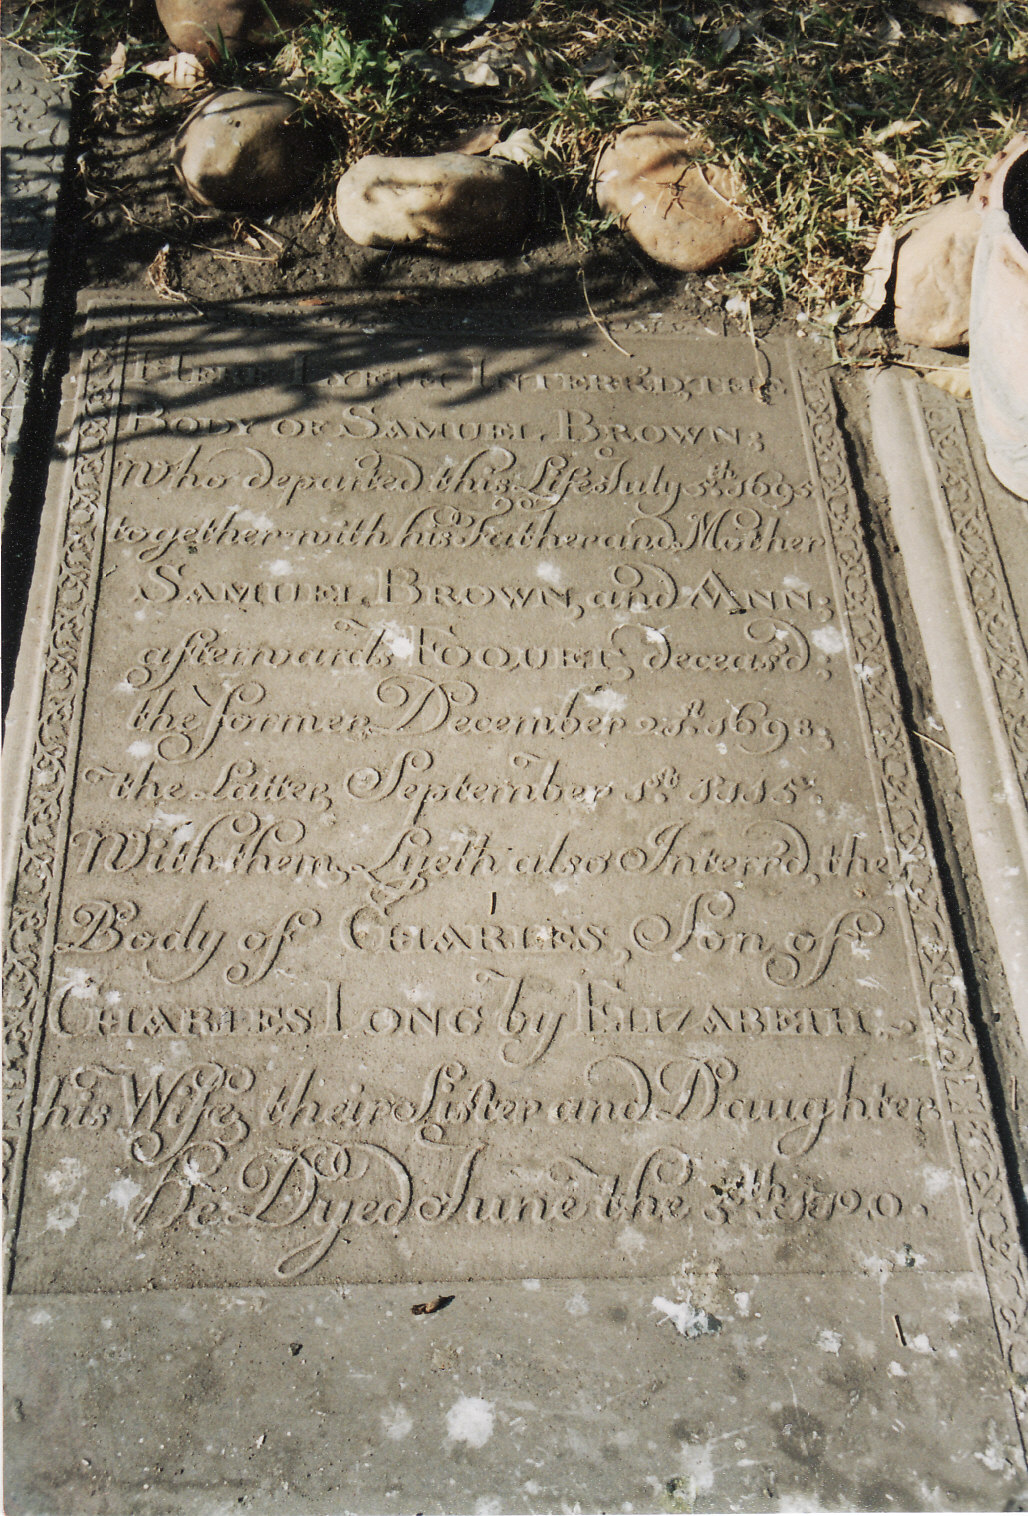 HERE LYETH INTERR'D, THE
BODY OF SAMUEL, BROWN;
Who departed this Life July 5.th 1695
together with his Father and Mother
SAMUEL BROWN, and ANN,
afterwards FOQUET; deceasd;
the former, December 25.th 1698.
the Latter, September 1.st 1715.
With them, Lyeth also Interrd, the
Body of CHARLES, Son of
CHARLES LONG by ELIZABETH,
his Wife, their Sister and Daughter
he Dyed June the 5.th 1720.